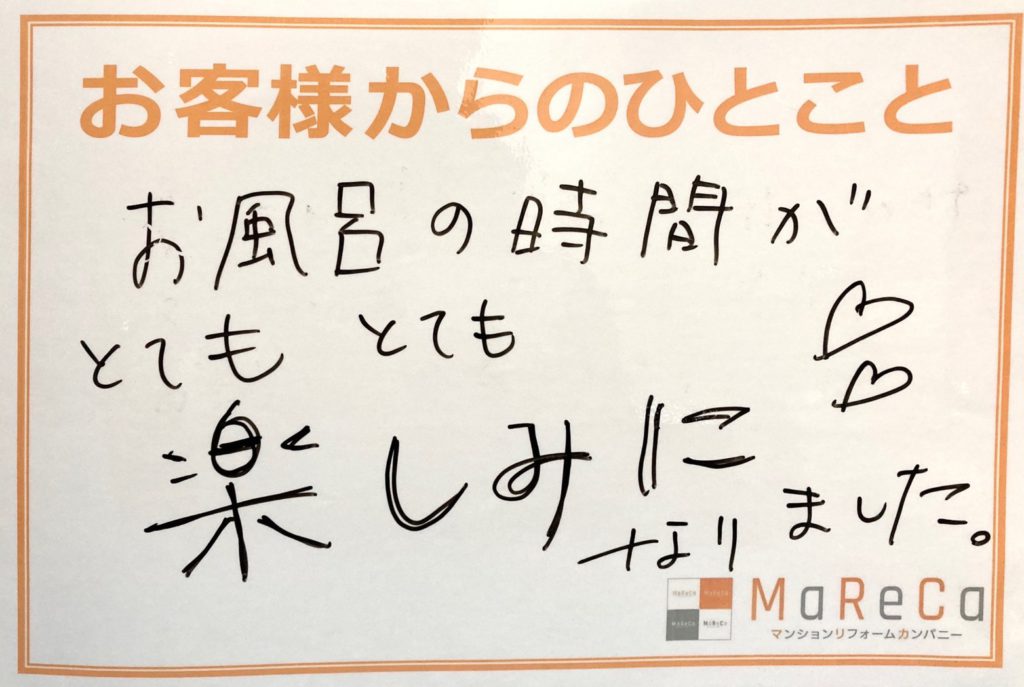 お客様からのひとこと
お風呂の時間が
とても とても
楽しみに
なりました。
MaReCa
マンションリフォームカンパニー
MaReCa
MaReCa
MaReCa
MaReCa